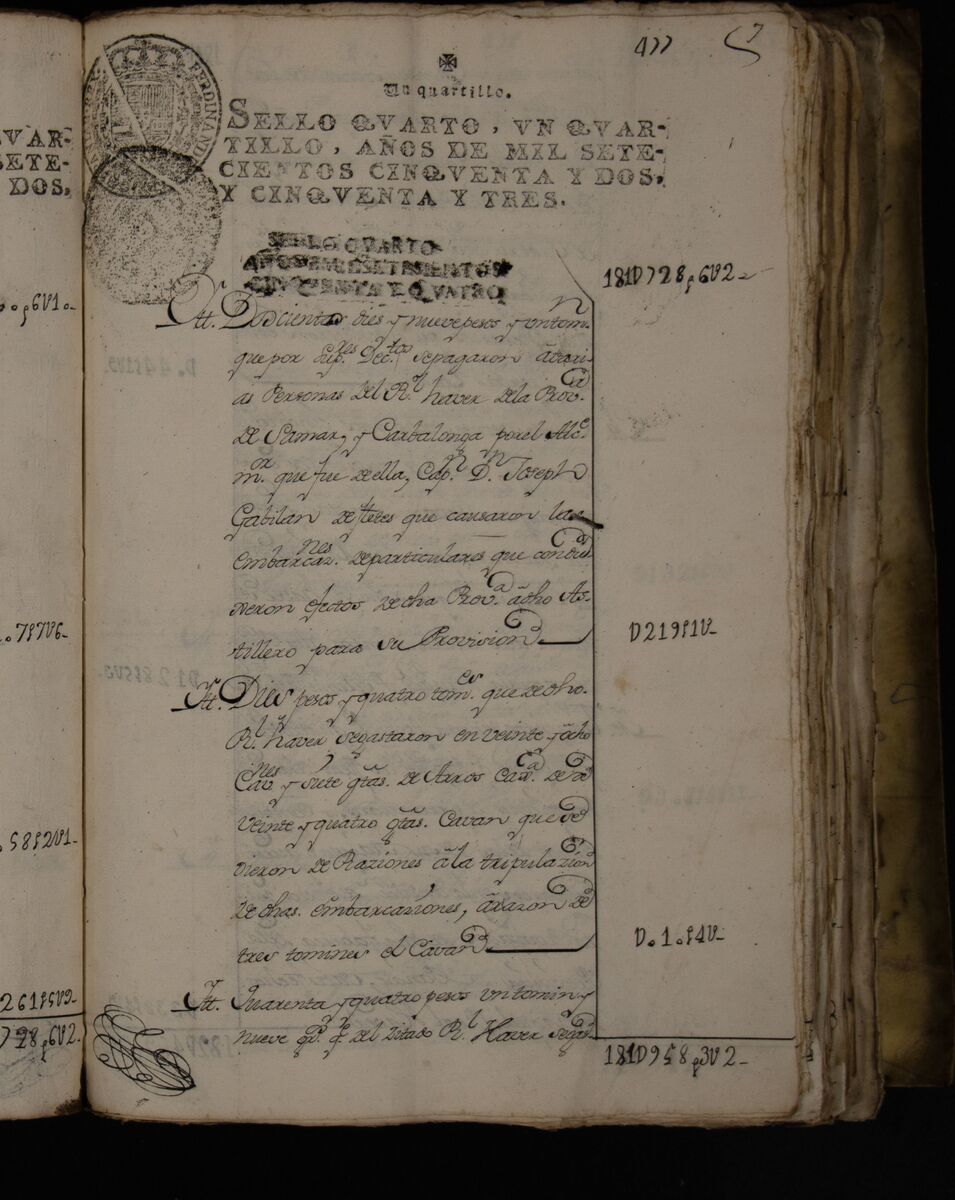 VAR-
SETE-
DOS,
p6U1o-
o7p7U6-
o58p2U1-
261p5U9-
728p6U2.
477
FERDINAND
Un quartillo.
SELLO QVARTO, VN QVAR-
TILLO, AÑOS DE MIL SETE-
CIENTOS CINQVENTA Y DOS,
Y CINQVENTA Y TRES.
SELLO QUARTO
AÑO DE MIL SETESIENTOS
CINCUENTA Y QUATRO
181D728p6U2-
Ytt. Doscientos dies y nueve pesos y un tomn.
que por Supres. Dectos. se pagaron â bari-
as Personas del Rl. haver de la Prova.
de Samar, y Catbalonga por el Alce.
mor. que fue de ella, Capn. Dn. Joseph
Gabilan de fletes que causaron las
embarcaznes. de particulares que condu
xeron efectos de dha Prova. â dho As-
tillero para su Provision
D219p1U-
Ytt. Dies pesos y quatro tomes. que de dho.
Rl. haver se gastaron en veinte y ôcho
Cavnes y siete gtas. de Arros Cada. de â
veinte y quatro gtas. Cavan que se
dieron de Raziones â la tripulazion
de dhas. embarcaziones, â razon de
tres tomines el Cavan
D.1.p4U-
Ytt. Quarenta y quatro pesos un tomin y
nueve gs. q. del zitado Rl. Haver se gas-
181D958p3U2-